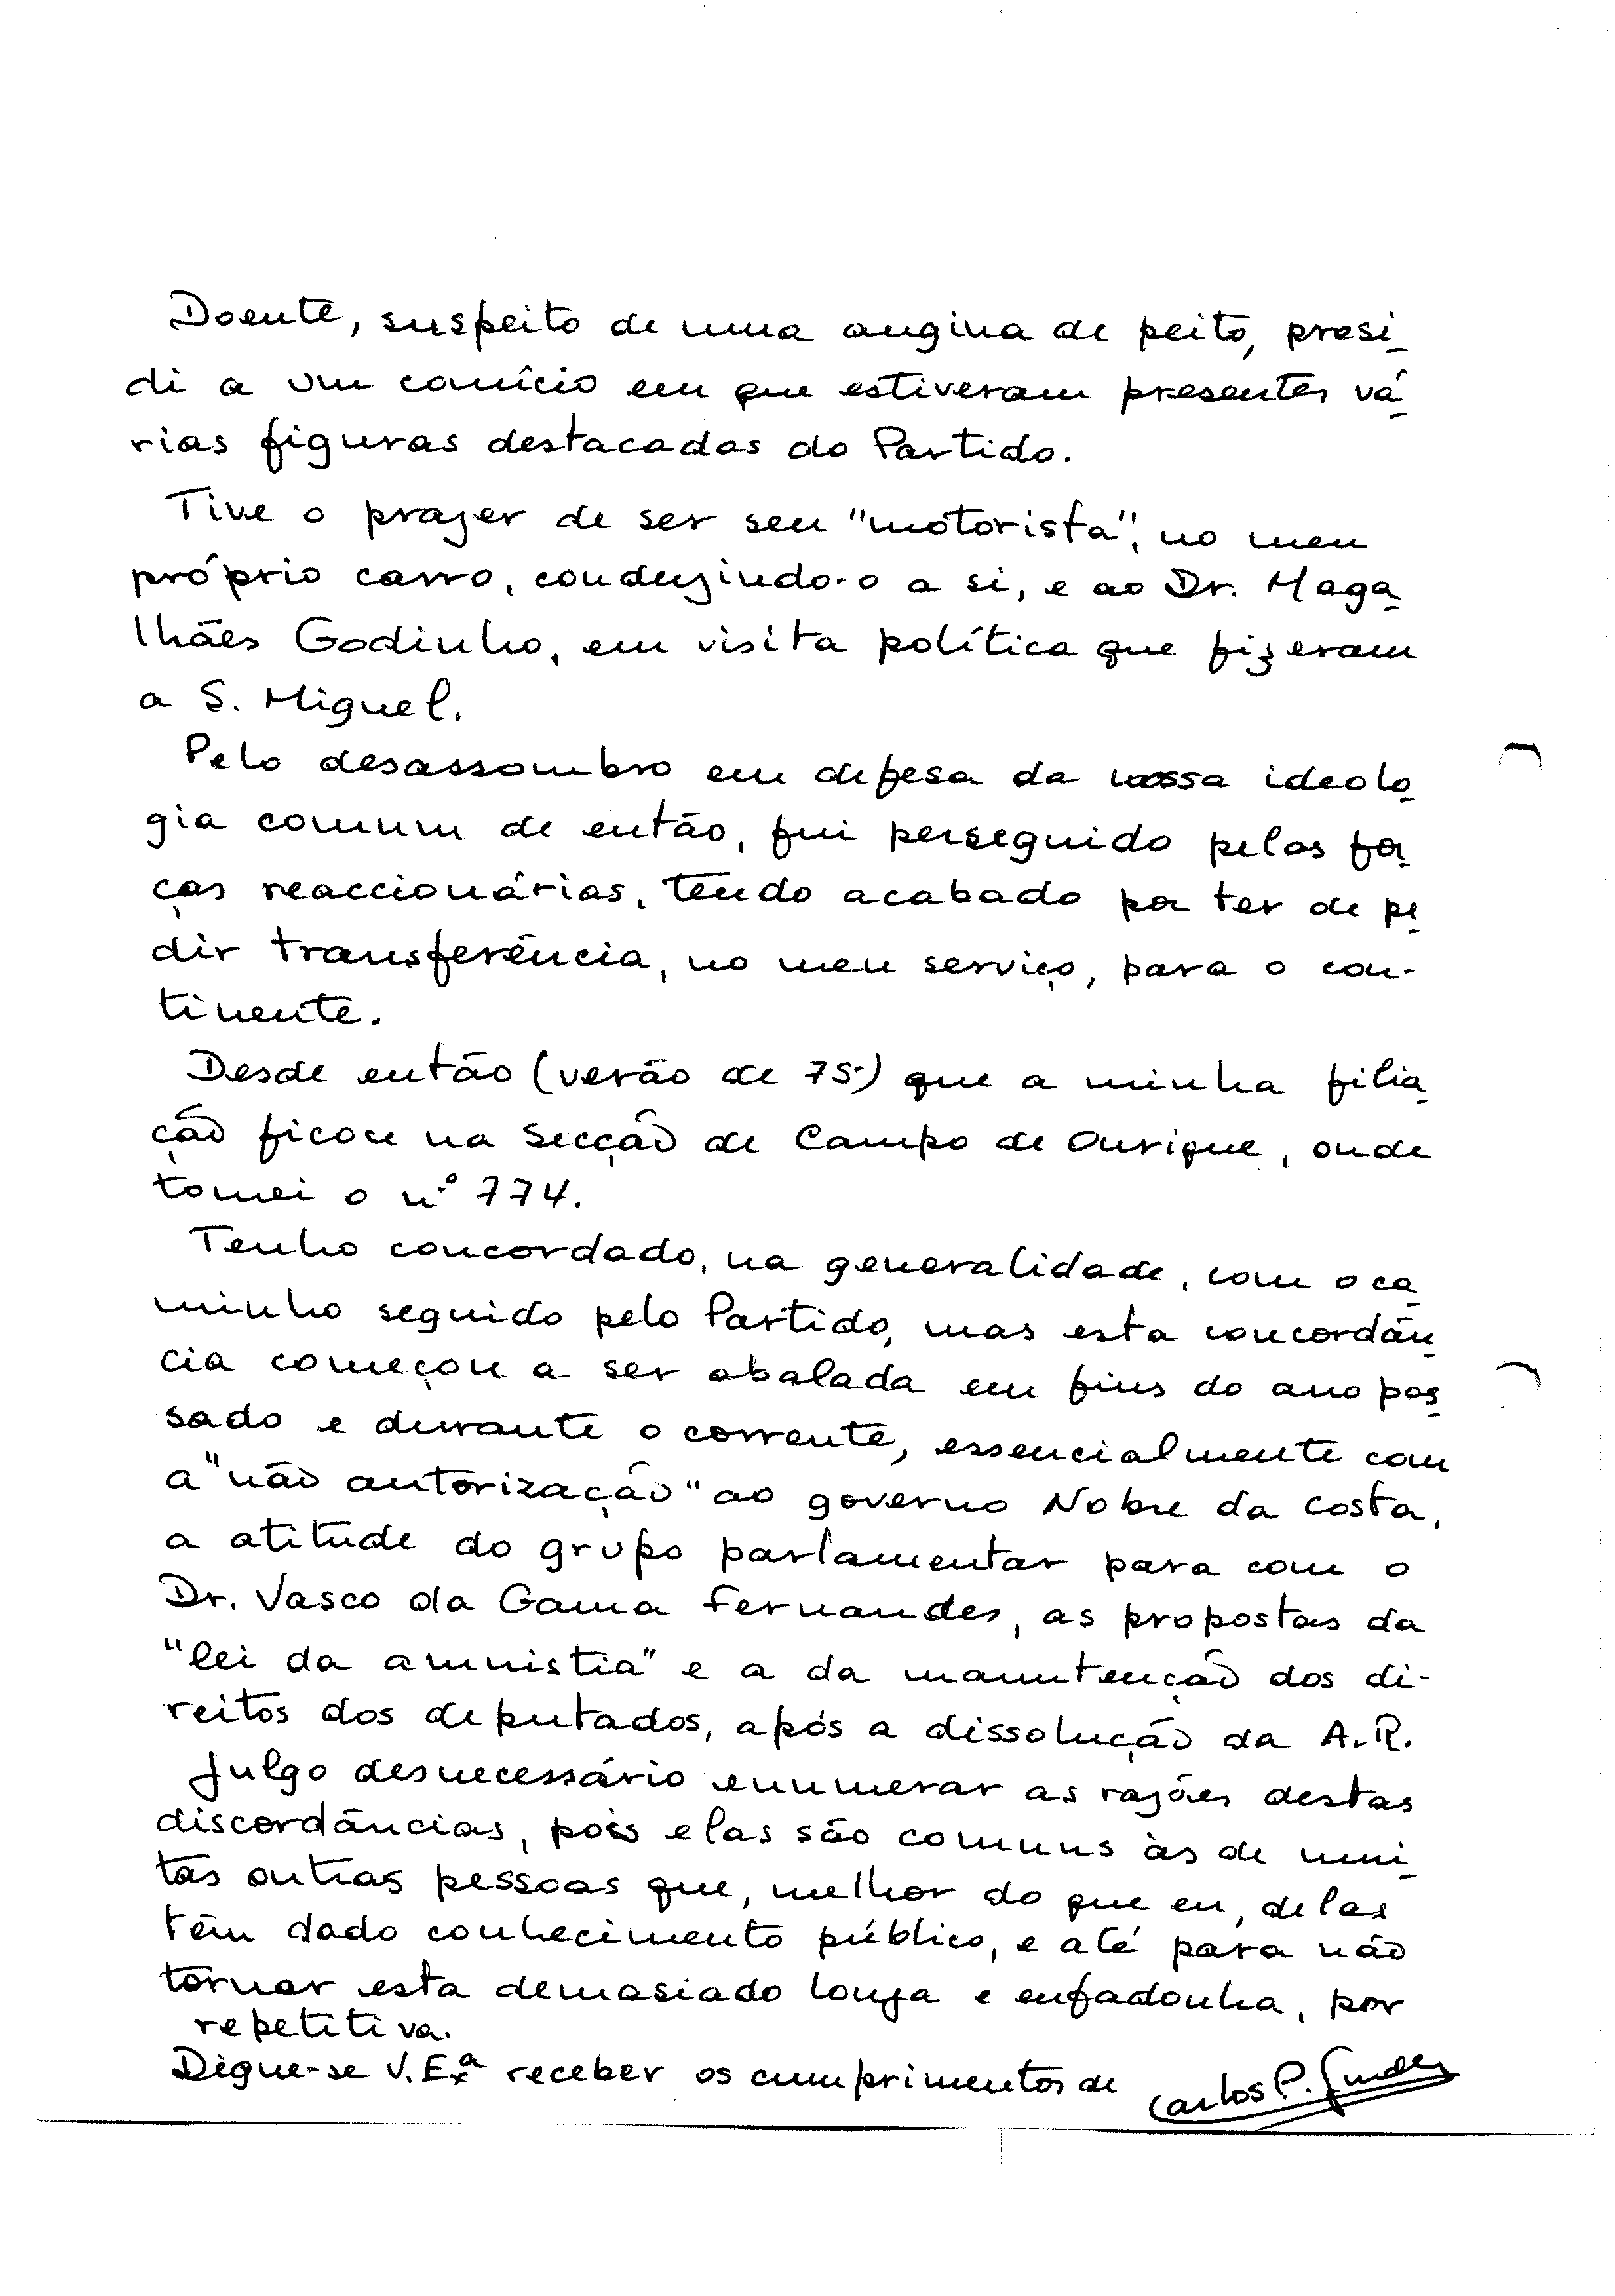 Doente, suspeito de uma angina de peito, presi-
di a um comício em que estiveram presentes vá-
rias figuras destacadas do Partido.
Tive o prazer de ser seu "motorista", no meu
próprio carro, conduzindo-o a si, e ao Dr. Maga-
lhães Godinho, em visita política que fizeram
a S. Miguel.
Pelo desassombro em defesa da nossa ideolo-
gia comum de então, fui perseguido pelas for-
ças reaccionárias, tendo acabado por ter de pe-
dir transferência, no meu serviço, para o con-
tinente.
Desde então (verão de 75) que a minha filia-
ção ficou na Secção de Campo de Ourique, onde
tomei o nº 774.
Tenho concordado, na generalidade, com o ca-
minho seguido pelo Partido, mas esta concordân-
cia começou a ser abalada em fins do ano pas-
sado e durante o corrente, essencialmente com
a "não autorização" ao governo Nobre da Costa,
a atitude do grupo parlamentar para com o
Dr. Vasco da Gama Fernandes, as propostas da
"lei da amnistia" e a da manutenção dos di-
reitos dos deputados, após a dissolução da A.R.
Julgo desnecessário enumerar as razões destas
discordâncias, pois elas são comuns às de mui-
tas outras pessoas que, melhor do que eu, delas
têm dado conhecimento público, e até para não
tornar esta demasiado longa e enfadonha, por
repetitiva.
Digne-se V. Exª receber os cumprimentos de Carlos P.